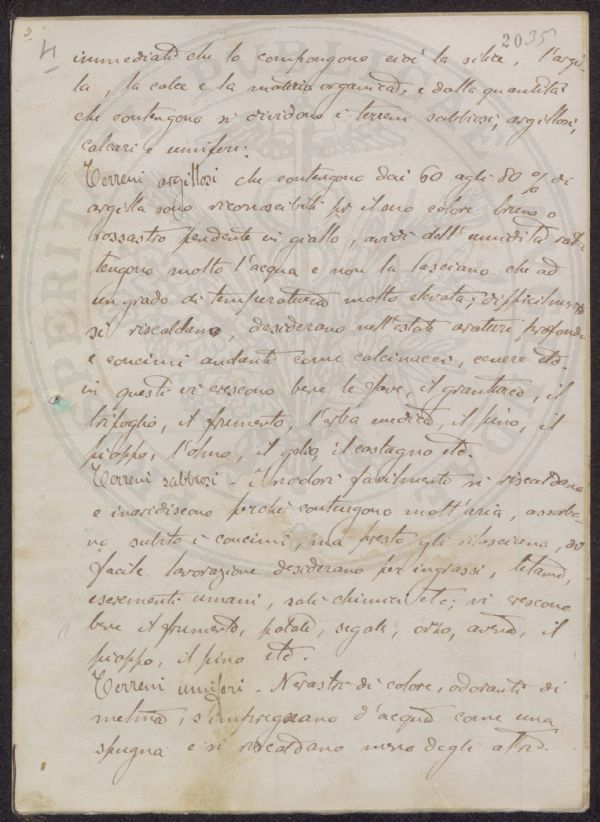 3 4 2035
immediati che lo compongono cioè la silice, l'argil-
la, la calce e la materia organica, e dalla quantità
che contengono si dividono i terreni sabbiosi, argillosi,
calcari e umiferi.
Terreni argillosi che contengono dai 60 agli 80 % di
argilla sono riconoscibili pel suo colore bruno o
rossastro pendente in giallo, avidi dell'umidità rat-
tengono molto l'acqua e non la lasciano che ad
un grado di temperatura molto elevata; difficilmente
si riscaldano, desiderano nell'estate arature profonde
e concimi andanti come calcinacci, cenere etc.
in questi vi crescono bene le fave, il granturco, il
trifoglio, il frumento, l'erba medica, il pino, il
pioppo, l'olmo, il gelso, il castagno etc.
Terreni sabbiosi - Inodori facilmente si riscaldano
e inaridiscono perchè contengono molt'aria, assorbo-
no subito i concimi, ma presto gli rilasciano, di
facile lavorazione desiderano per ingrassi, letame,
escrementi umani, sali chimici etc; vi crescono
bene il frumento, patate, segale, orzo, avena, il
pioppo, il pino etc.
Terreni umiferi - Nerastri di colore, odoranti di
melma, s'impregnano d'acqua come una
spugna e si riscaldano meno degli altri.